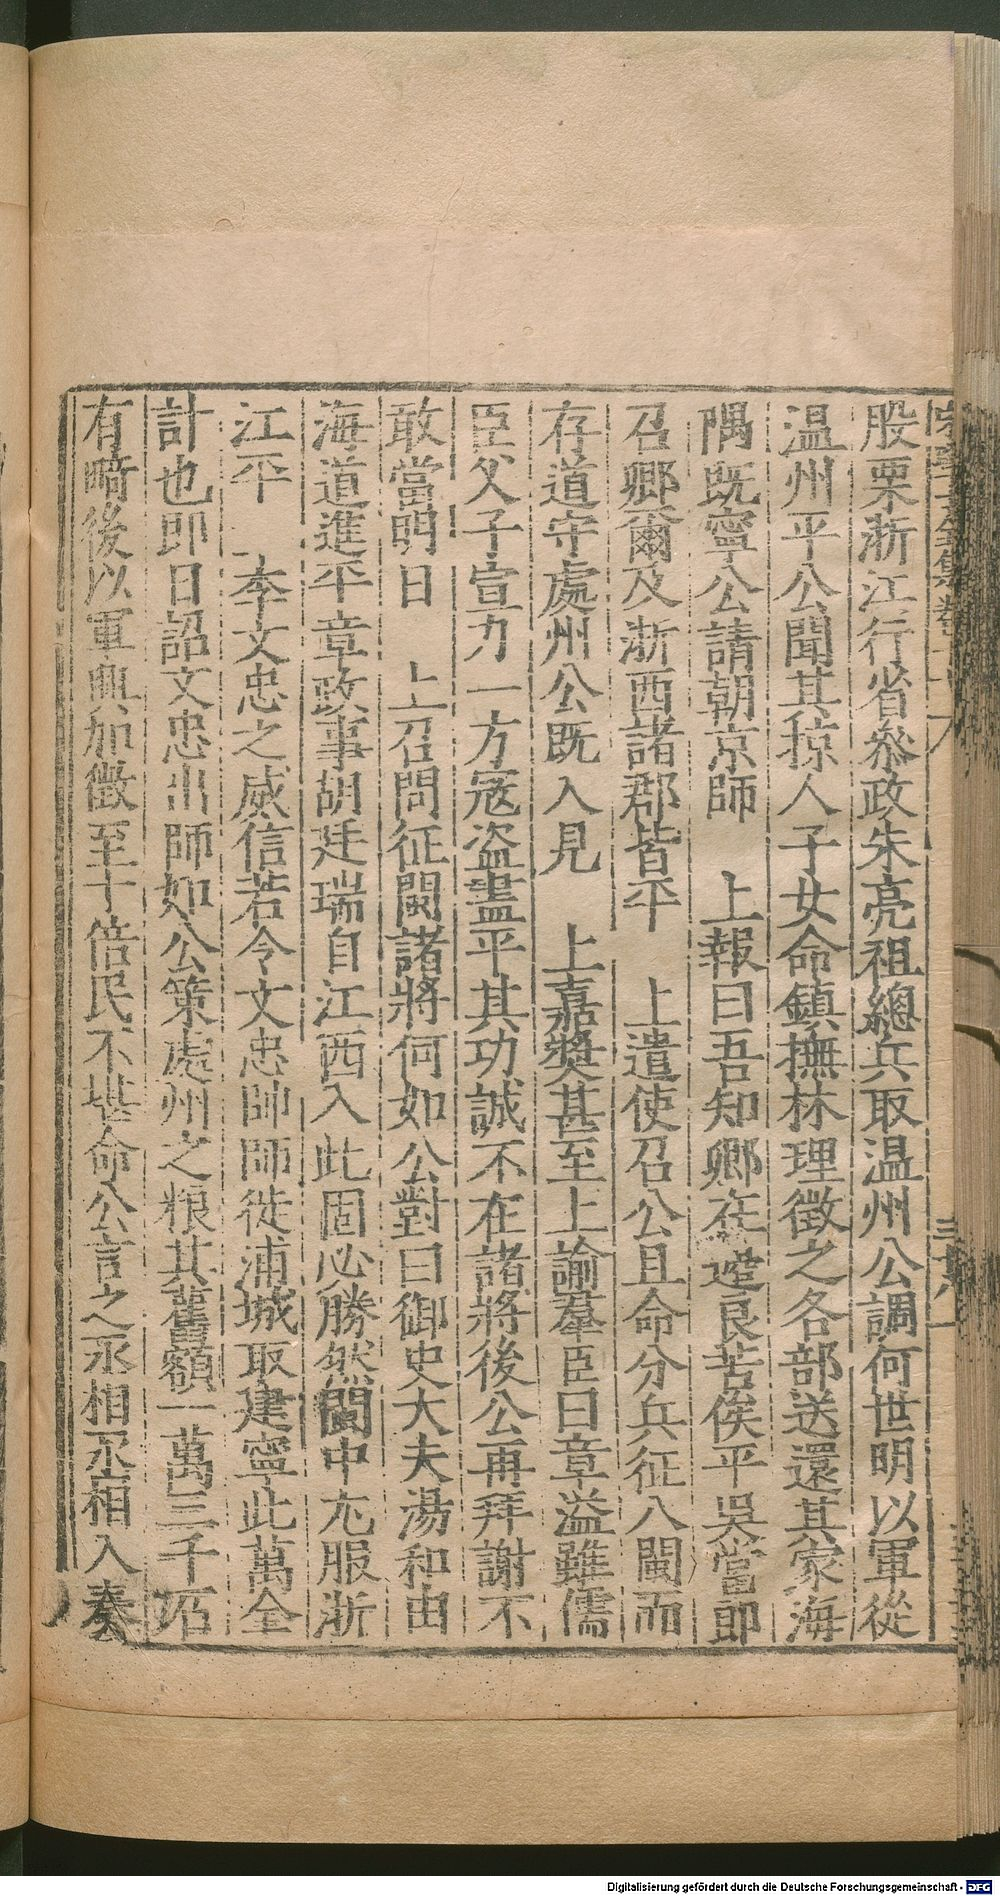 股栗浙江行省參政朱亮祖總兵取温州公調何世明以軍從
温州平公聞其掠人子女命鎮撫林理徵之各部送還其家海
隅既寧公請朝京師　上報曰吾知卿在邊良苦俟平吳當即
召卿爾及浙西諸郡皆平　上遣使召公且命分兵征八閩而
存道守處州公既入見　上嘉奬甚至上諭羣臣曰章溢雖儒
臣父子宣力一方寇盗盡平其功誠不在諸將後公再拜謝不
敢當明日　上召問征閩諸將何如公對曰御史大夫湯和由
海道進平章政事胡廷瑞自江西入此固必勝然閩中尤服浙
江平　李文忠之威信若令文忠帥師從浦城取建寧此萬全
計也即日詔文忠出師如公策處州之粮其舊額一萬三千石
有畸後以軍興加徵至十倍民不堪命公言之丞相丞相入奏
Digitalisierung gefördert durch die Deutsche Forschungsgemeinschaft - DFG